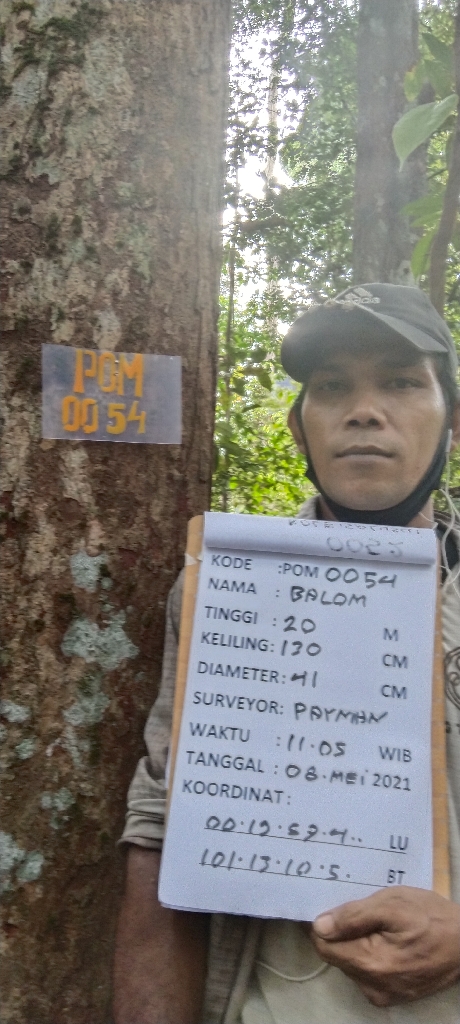 POM
0054
KODE :POM 0054
NAMA : BALOM
TINGGI : 20 M
KELILING: 130 CM
DIAMETER: 41 CM
SURVEYOR: PAYMAN
WAKTU : 11.05 WIB
TANGGAL : 08.MEI 2021
KOORDINAT:
LU
101.13.10.5. BT